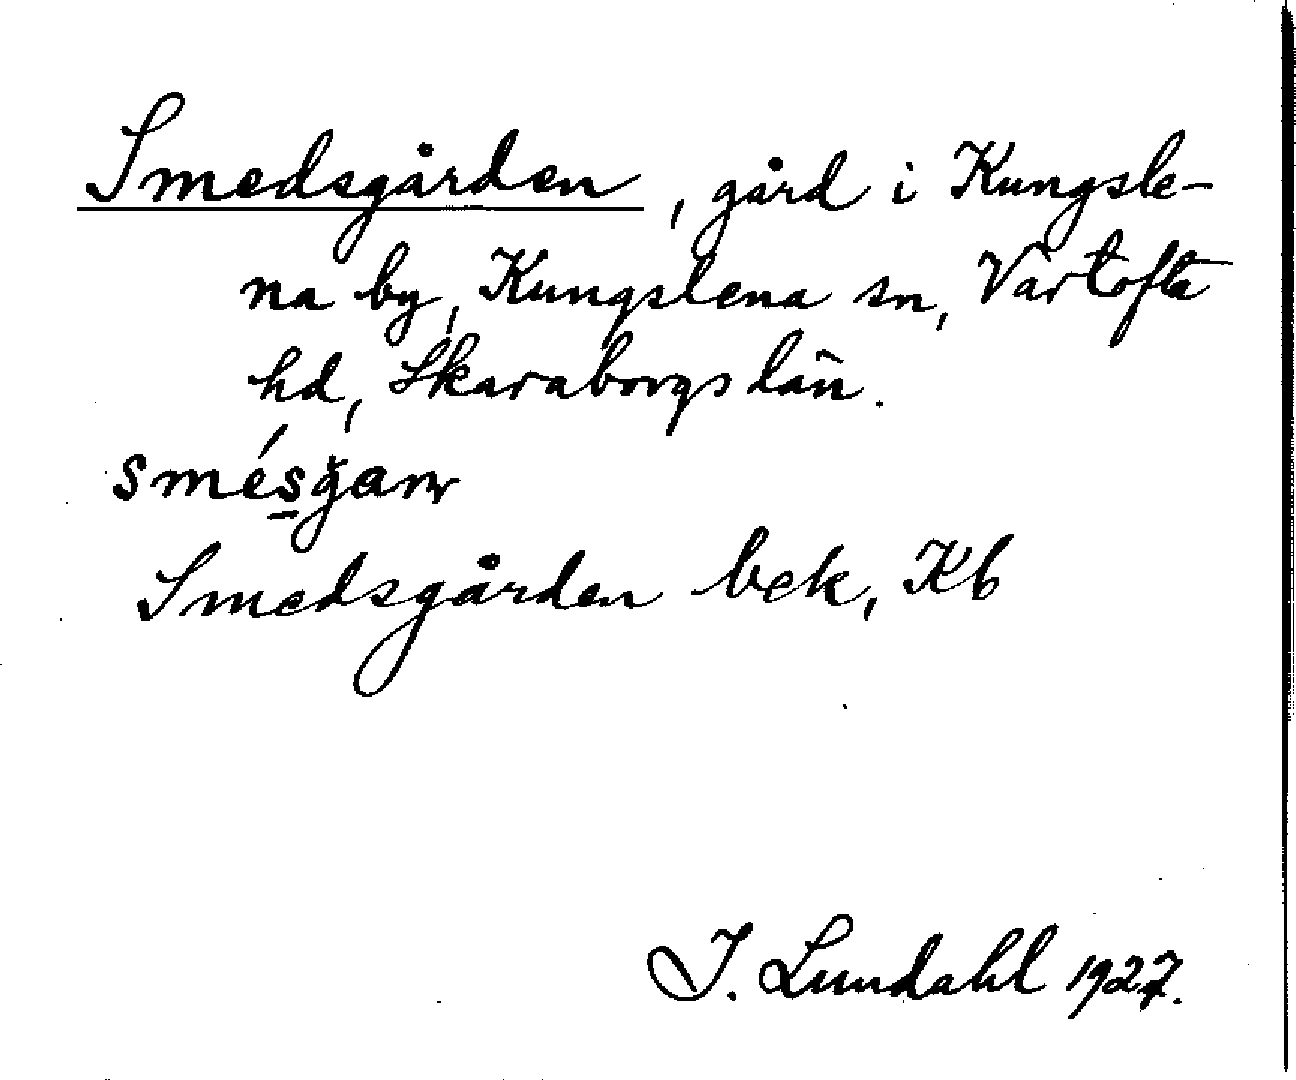 Smedsgården, gård i Kungsle-
na by, Kungslena sn, Vartofta
hd, Skaraborgs län.
Smedsgården bek, Kb
I. Lundahl 1927.